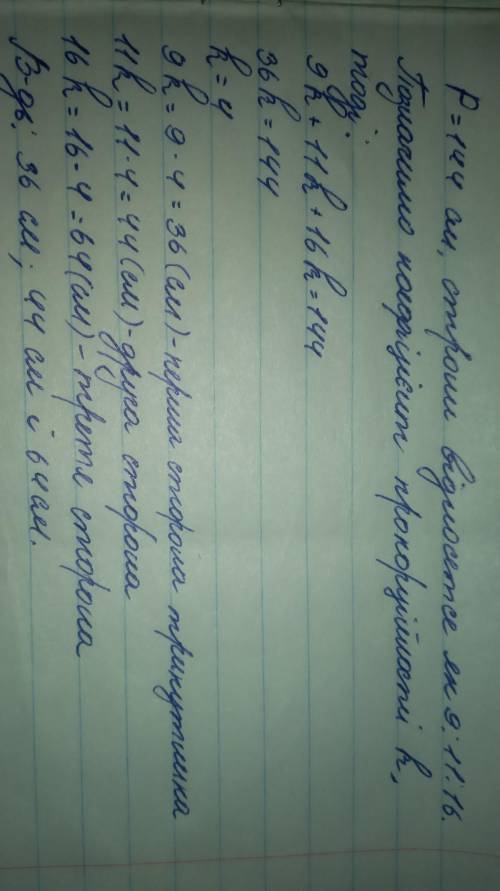 P=144 см, сторони відносетсе як 9:11:16.
Позначимо коефіцієнт пропорційності k,
тоді:
9k+11k+16k=144
36k=144
k=4
9k=9·4=36(см)-перша сторона трикутника
11k=11·4=44(см)-друга сторона
16k=16·4=64(см)-третя сторона
В-дь: 36 см; 44 см і 64см.